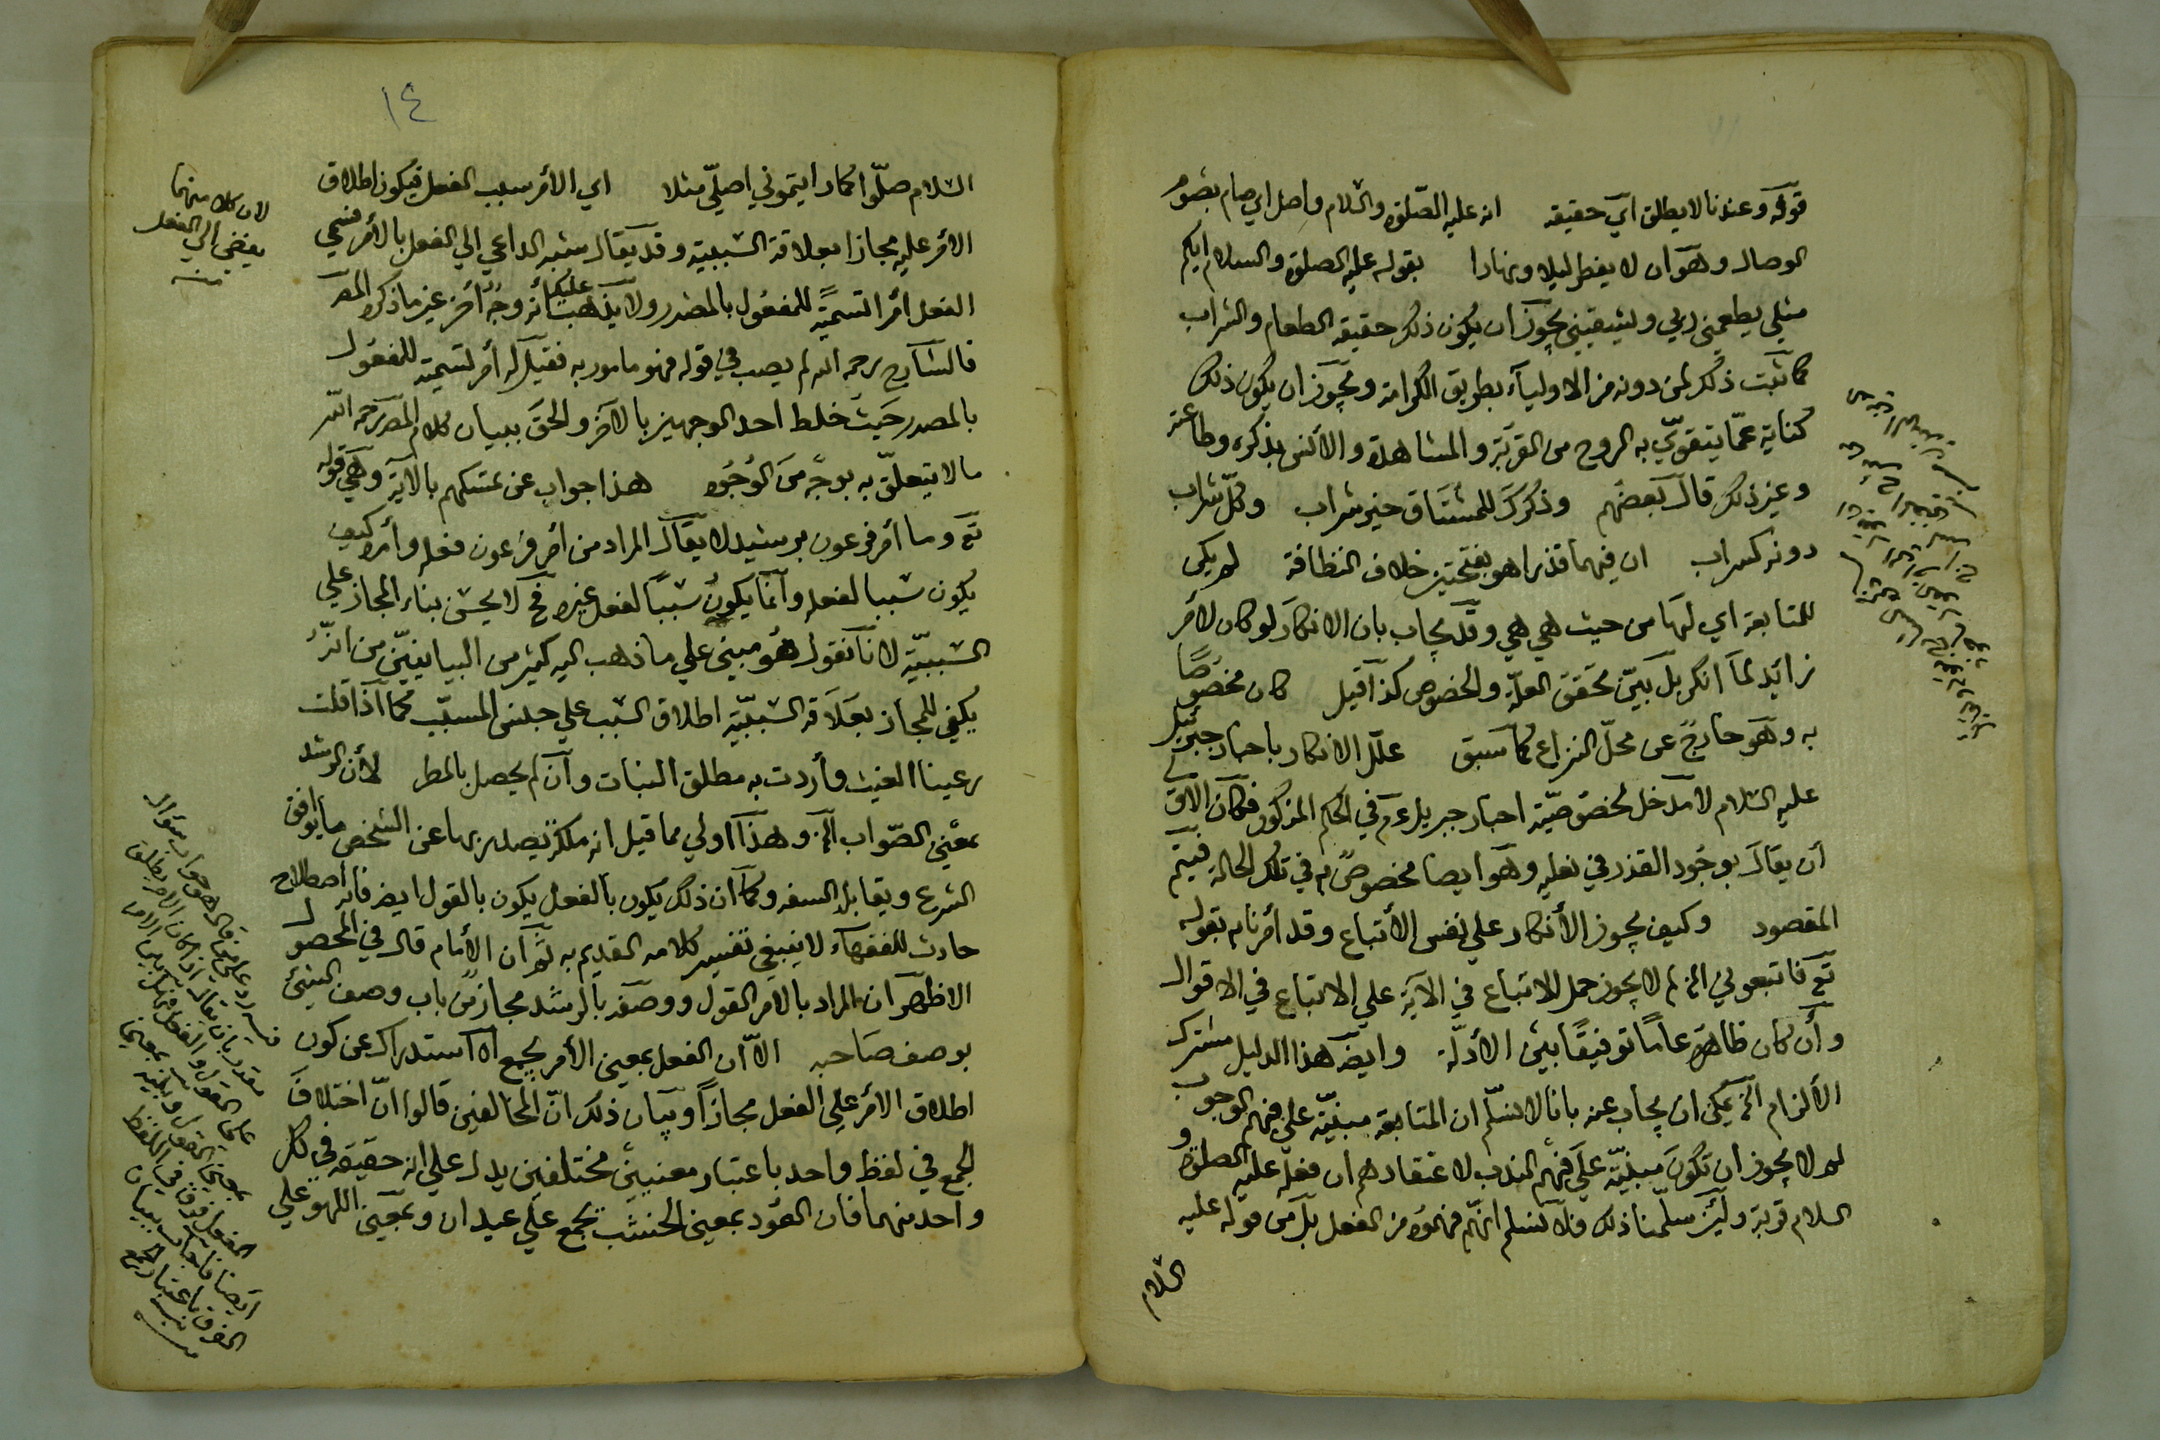 قوله وعندنا لا يطلق اي حقيقة انه عليه الصلوة والسلام واصل اي صام بصوم
الوصال وهو ان لا يفطر ليلا ونهارا بقوله عليه الصلوة والسلام ايكم
مثلي يطعمني ربي ويسقيني يجوز ان يكون ذلك حقيقة الطعام والشراب
كما ثبت ذلك لمن دونه من الاولياء بطريق الكرامة ويجوز ان يكون ذلك
كناية عمّا يتقوّي به الروح من القربة والمشاهدة والأنس بذكره وطاعته
وغير ذلك قال بعضهم وذكرك للمشتاق خير شراب وكلّ شراب
دونه كسراب ان فيهما قذرا هو بفتحتين خلاف النظافة لم يكن
للمتابعة اي لها من حيث هي هي وقد يجاب بان الانكار لو كان لأمر
زائد لما انكر بل بيّن تحقق العلّة والخصوص كذا قيل كان مخصوصًا
به وهو خارج عن محلّ النزاع كما سبق علّل الانكار باخبار جبرئيل
عليه السّلام لا مدخل لخصوصيّة اخبار جبريل عم في الحكم المذكور فكان الاولى
ان يقال بوجود القذر في نعليه وهو ايضا مخصوص به في تلك الحالة فيتم
المقصود وكيف يجوز الأنكار على نفس الأتباع وقد أمرنا به بقوله
تع فاتبعوني الخ لم لا يجوز حمل الاتباع في الآية علي الاتباع في الاقوال
وأن كان ظاهره عامّا توفيقًا بين الأدلّة وايضا هذا الدليل مشترك
الألزام الخ يمكن ان يجاب عنه بانا لا نسلّم ان المتابعة مبنيّة علي فهم الوجوب
لم لا يجوز ان تكون مبنيّة علي فهم الندب لاعتقادهم ان فعله عليه الصلوة و
السلام قربة ولئن سلّمنا ذلك فلا نسلم انهم فهموه من الفعل بل من قوله عليه
السّلام
١٤
السّلام صلّوا كما رايتموني اصلّي مثلا اي الأمر سبب الفعل فيكون اطلاق
الأمر عليه مجازا بعلاقة السّببية وقد يقال شبه الداعي الي الفعل بالأمر فسمي
الفعل أمرا تسميةً للمفعول بالمصدر ولا يذهب عليك أنه وجه آخر غير ما ذكره المص
قال الشارح رحمه الله لم يصب في قوله فهو مامور به فقيل له أمر تسمية للمفعول
بالمصدر حيث خلط احد الوجهين بالآخر والحق ببيان كلام المص رحمه الله
ما لا يتعلّق به بوجه من الوجوه هذا جواب عن تمسكهم بالآية وهي قوله
تع وما أمر فرعون برشيد لا يقال المراد من أمر فرعون فعله وأمره كيف
يكون سببا لفعله وانما يكون سببًا لفعل غيره فح لا يحسن بناء المجاز علي
السّببيّة لانا نقول هو مبني علي ما ذهب اليه كثير من البيانيّين من انّه
يكفي للمجاز بعلاقة السّببيّة اطلاق السّبب علي جنس المسبّب كما اذا قلت
رعينا الغيث وأردت به مطلق النبات وان لم يحصل بالمطر لأن الرشد
بمعني الصّواب الخ وهذا اولي مما قيل انه ملكة تصدر بها عن الشخص ما يوافق
الشرع ويقابله السفه وكما ان ذلك يكون بالفعل يكون بالقول ايضا فانه اصطلاح
حادث للفقهاء لا ينبغي تفسير كلامه القديم به ثم ان الأمام قال في المحصول
الاظهر ان المراد بالأمر القول ووصفه بالرشد مجاز من باب وصف الشئ
بوصف صاحبه الاّ ان الفعل بمعني الأمر يجمع الخ استدراك عن كون
اطلاق الأمر علي الفعل مجازًا وبيان ذلك انّ المخالفين قالوا انّ اختلاف
الجمع في لفظ واحد باعتبار معنيين مختلفين يدل علي انه حقيقة في كل
واحد منهما فان العود بمعني الخشب يجمع علي عيدان وبمعني اللهو علي
لان كلا منهما
يفضي الي الفعل
منه